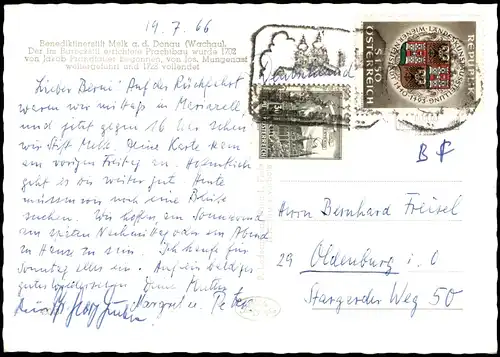 19.7.66
Benediktinerstift Melk a. d. Donau (Wachau).
Der im Barockstil errichtete Prachtbau wurde 1702
von Jakob Prandtauer begonnen, von Jos. Mungenast
weitergeführt und 1725 vollendet
Lieber Bernd! Auf der Rückfahrt
waren wir mittags in Mariazell
und jetzt gegen 16 Uhr sehen
wir Stift Melk. Deine Karte kam
am vorigen Freitag an. Hoffentlich
geht es Dir weiter gut. Heute
müssen wir noch eine Bleibe
suchen. Wir hoffen, am Sonnabend
am späten Nachmittag oder am Abend
zu Haus zu sein. Ich kaufe für
Sonntag alles ein. Auf ein baldiges
gutes Wiedersehen Deine Mutter
Margret u. Peter
Deutschland
REPUBLIK
ÖSTERREICH
S 1.50
B
Herrn Bernhard Freisel
29 Oldenburg i. O
Stargarder Weg 50